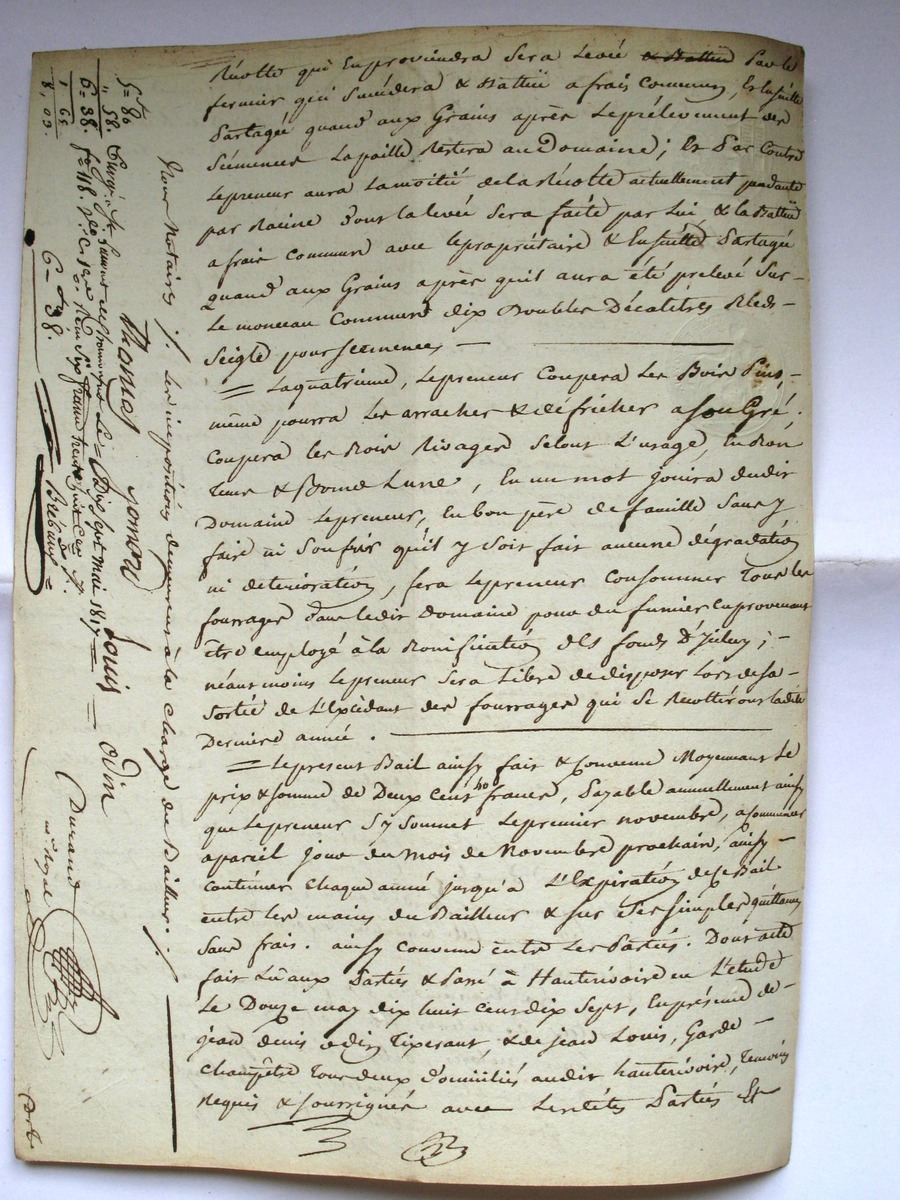 Récolte qui En proviendra Sera Levée & Battüe Par le
fermier qui Succèdera & Battüe a frais Communs, Et Ensuitte
Partagée quand aux Grains après Le prélèvement des
Sémences La paille Restera au Domaine ; Et Par Contre
Le preneur aura La moitié de la Récolte actuellement pendante
par Racine Pour la levée Sera faite par Lui, & la Battüe
a frais Communs avec le propriétaire & Ensuitte Partagée
quand aux Grains après qu'il aura été prelevé Sur
Le monceau Commun dix Doubles Décalitres Bled
Seigle pour Semences —
= La quatrieme, Le preneur Coupera Les Bois Pins,
même pourra Les arracher & défricher a Son Gré.
Coupera les Bois Rivages Selont L'usage, En Bon
Tems & Bonne Lune, En un mot Jouira dudit
Domaine Le preneur, En bon père de famille Sans y
faire ni Soufrir qu'il y Soit fait aucune dégradation
ni deterioration, fera Le preneur Consommer Tous les
fourrages dans ledit Domaine pour du fumier En provenant
être employé à la Bonification des fonds D'Iceluy ;
néanmoins Le preneur Sera Libre de disposer Lors de Sa
Sortie de L'Excèdant des fourrages qui Se Recolteront Ladite
Derniere année.
= Le present Bail ainsy fait & Convenu Moyennant Le
prix & Somme de Deux Cent francs, Payable annuellement ainsy
que Le preneur S'y Soumet Le premier novembre, a Commencer
a pareil Jour du mois de Novembre prochain, ainsy
Continuer Chaque année jusqu'a L'Expiration de Ce Bail
entre les mains du Bailleur & Sur Ses Simples quittances
Sans frais. ainsy convenu entre Les Parties. Dont acte
fait Lû aux Parties & Passé à Hauterivoire en L'etude
Le Douze may dix huit Cent dix Sept, En présence de
Jean denis odin Tixerant, & de jean Louis, Garde
Champêtre Tous deux Domiciliés audit hauterivoire, Témoins
Requis & Soussignés avec Lesdites Parties Et
Nous Notaires /. Les impositions demeurent à la Charge du Bailleur. /
Thonet Louis Odin
Durand
nre Royal
Le Dix sept mai 1817
5 = 80
" 58.
6 = 38.
1 65
8, 03.
6 = 38.